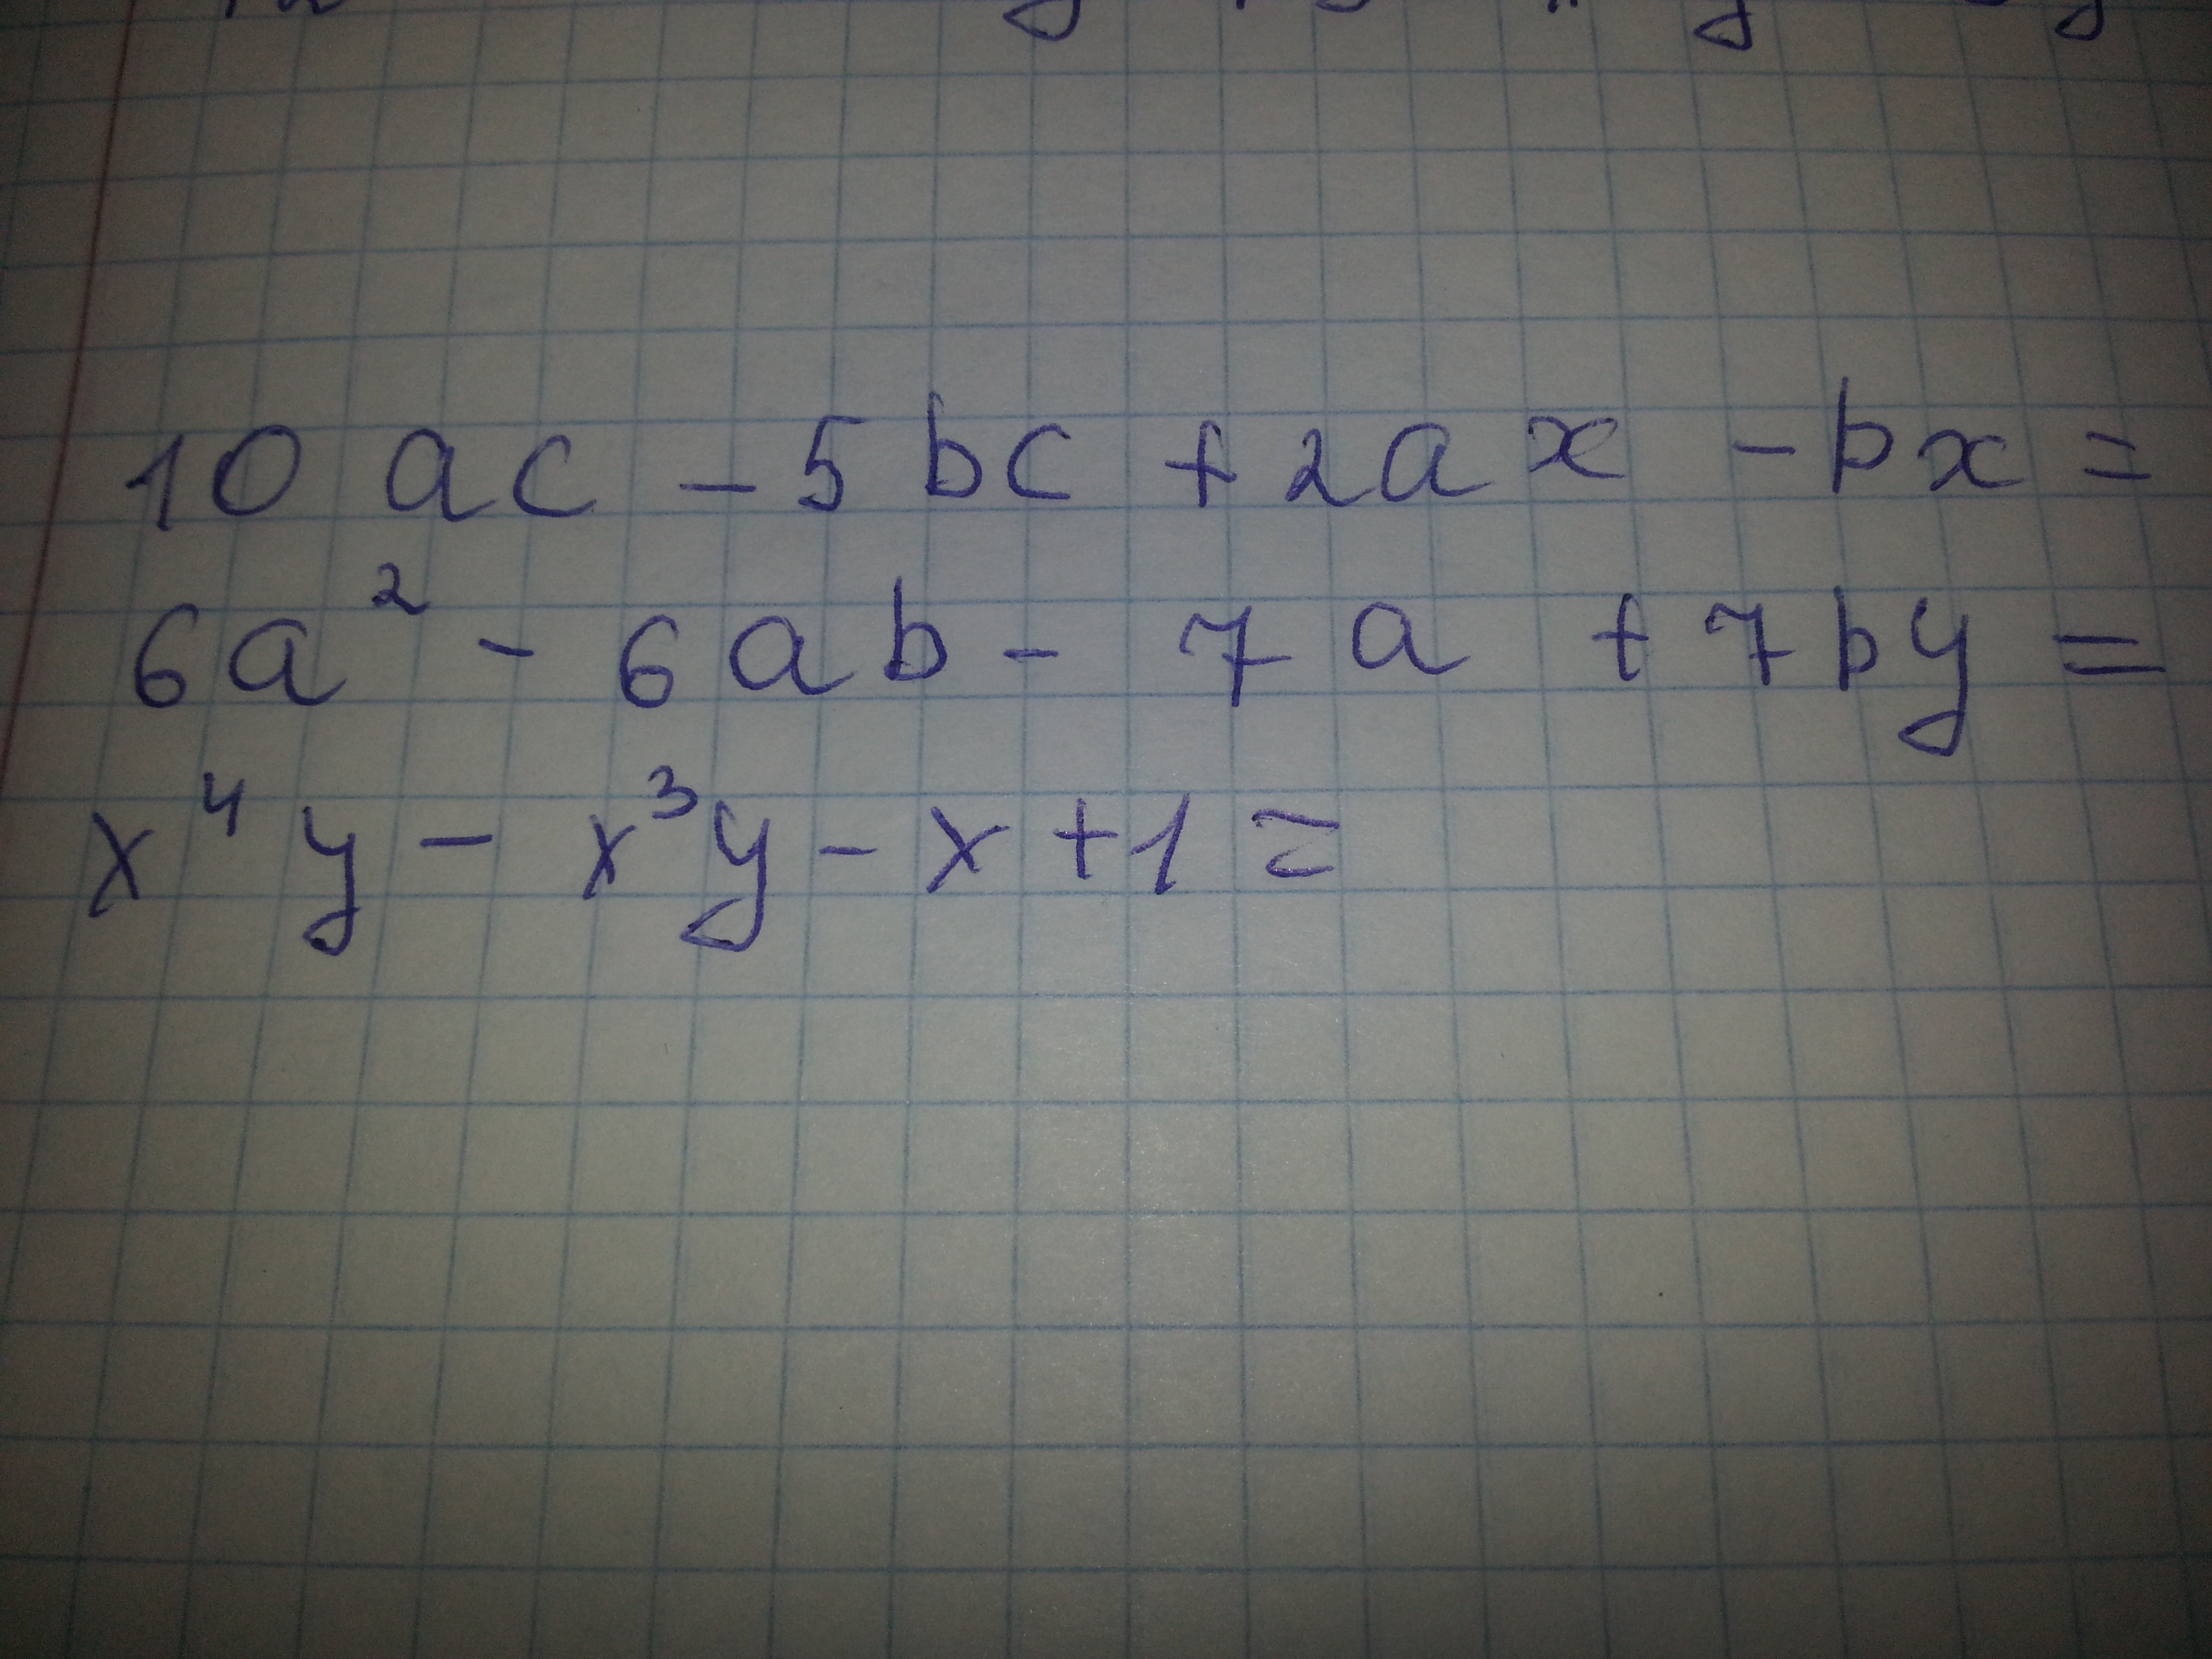 10 ac - 5bc + 2ax - bx =
6a² - 6ab - 7a + 7by =
x⁴y - x³y - x + 1 =